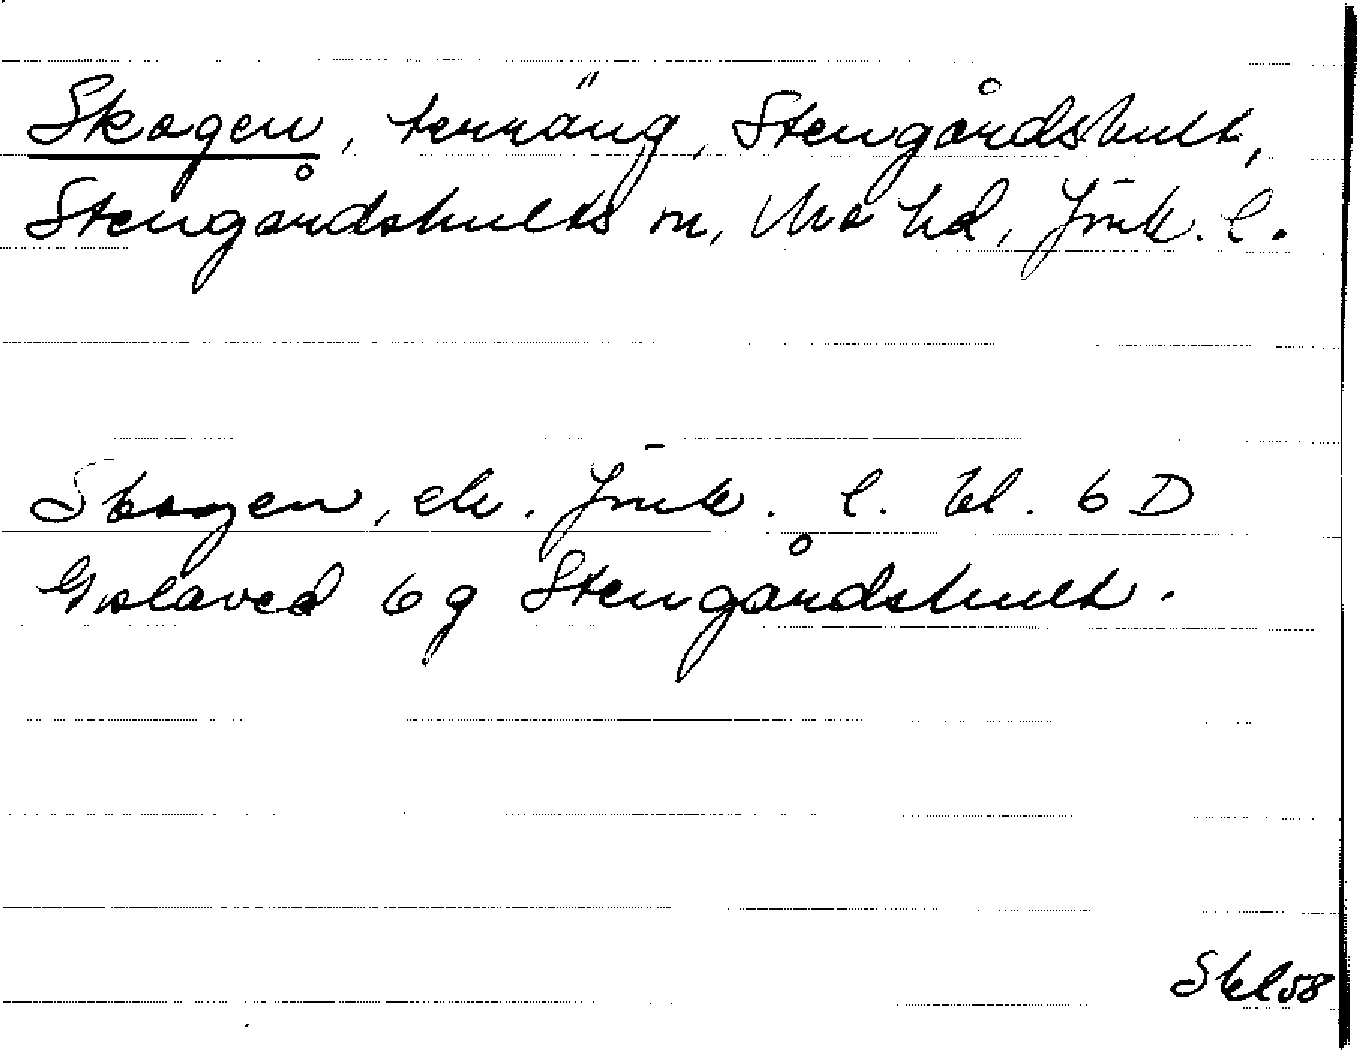 Skogen, terräng, Stengårdshult,
Stengårdshults sn, Mo hd, Jönk. l.
Skogen, ek. Jönk. l. bl. 6 D
Gislaved 6 g Stengårdshult.
Skl 58